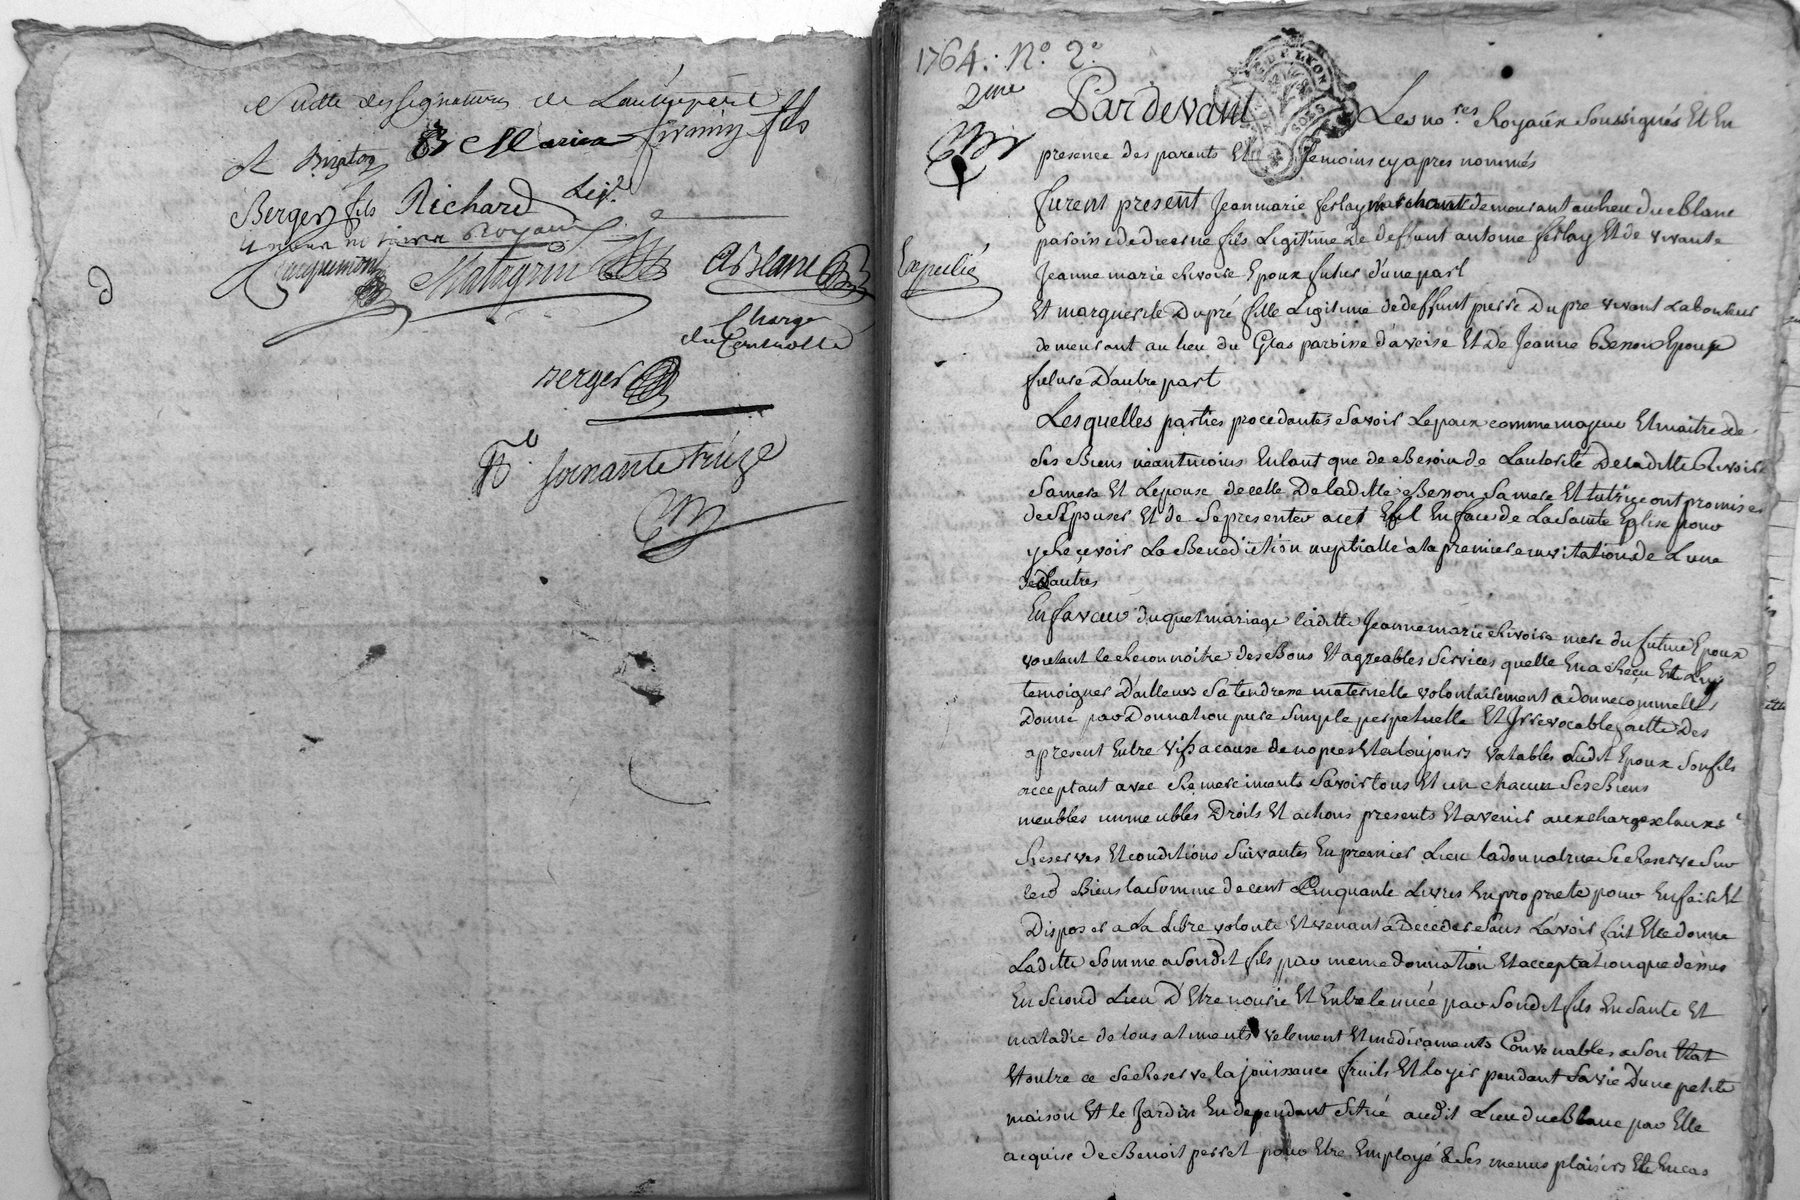 Suitte des signatures de
Berger fils Richard
Jacquemont Matagrin
Charge
du Controlle
Berger
soixante treize
1764. N.o 2.o
2me
Expedié
GENE. DE LYON
2. SOLS
Pardevant Les no.res Royaux Soussignés Et En
presence des parents Et temoins cyapres nommés
furent present Jeanmarie ferlay marchant demeurant au lieu du Blanc
paroisse de dierne fils Legitime de deffunt antoine ferlay Et de vivante
Jeanne marie Rivoire Epoux futur d'une part
Et marguerite Dupré fille Legitime de deffunt pierre Dupre vivant Laboureur
demeurant au lieu du Gras paroisse d'aveise Et de Jeanne Besson Epouse
future D'autre part
Lesquelles parties procedantes Savoir Lepoux comme majeur Et maitre de
Ses Biens néantmoins Entant que de Besoin de Lautorité De laditte Rivoire
Sa mere Et Lepouse de celle De laditte Besson Sa mere Et tutrice ont promis
de S'Epouser Et de Se presenter a cet Effet En face de La Sainte Eglise pour
y Recevoir La Benediction nuptialle a la premiere invitation de L'une
des autres
En faveur duquel mariage laditte Jeanne marie Rivoire mere du futur Epoux
voulant le Reconnoitre des Bons Et agreables Services quelle En a Reçu Et Luy
temoigner D'ailleurs Sa tendresse maternelle volontairement a donné comme Elle
Donne par Donnation pure Simple perpetuelle Et Irrevocable faitte Des
apresent Entre vifs a cause de nopces Et a toujours valable audit Epoux Son fils
acceptant avec Remerciments Savoir tous Et un chacun Ses Biens
meubles immeubles Droits Et actions presents Et avenir aux charges clauses
Reserves Et conditions Suivantes En premier Lieu la donnatrice Se Reserve Sur
lesd Biens la Somme de cent Cinquante Livres En proprieté pour En faire Et
Disposer a La Libre volonte Et venant a Deceder Sans L'avoir fait Elle donne
Laditte Somme a Sondit fils par meme donnation Et acceptation que dessus
En Second Lieu D'Etre nourie Et Entretenuée par Sondit fils En Sante Et
maladie de tous aliments vetement Et médicaments Convenables a Son Etat
Et outre ce Se Reserve la jouissance fruits Et Loyer pendant Sa vie D'une petite
maison Et le Jardin En dependant Situé audit Lieu du Blanc par Elle
acquise de Benoit perret pour Etre Employé a Ses menus plaisirs Et En cas